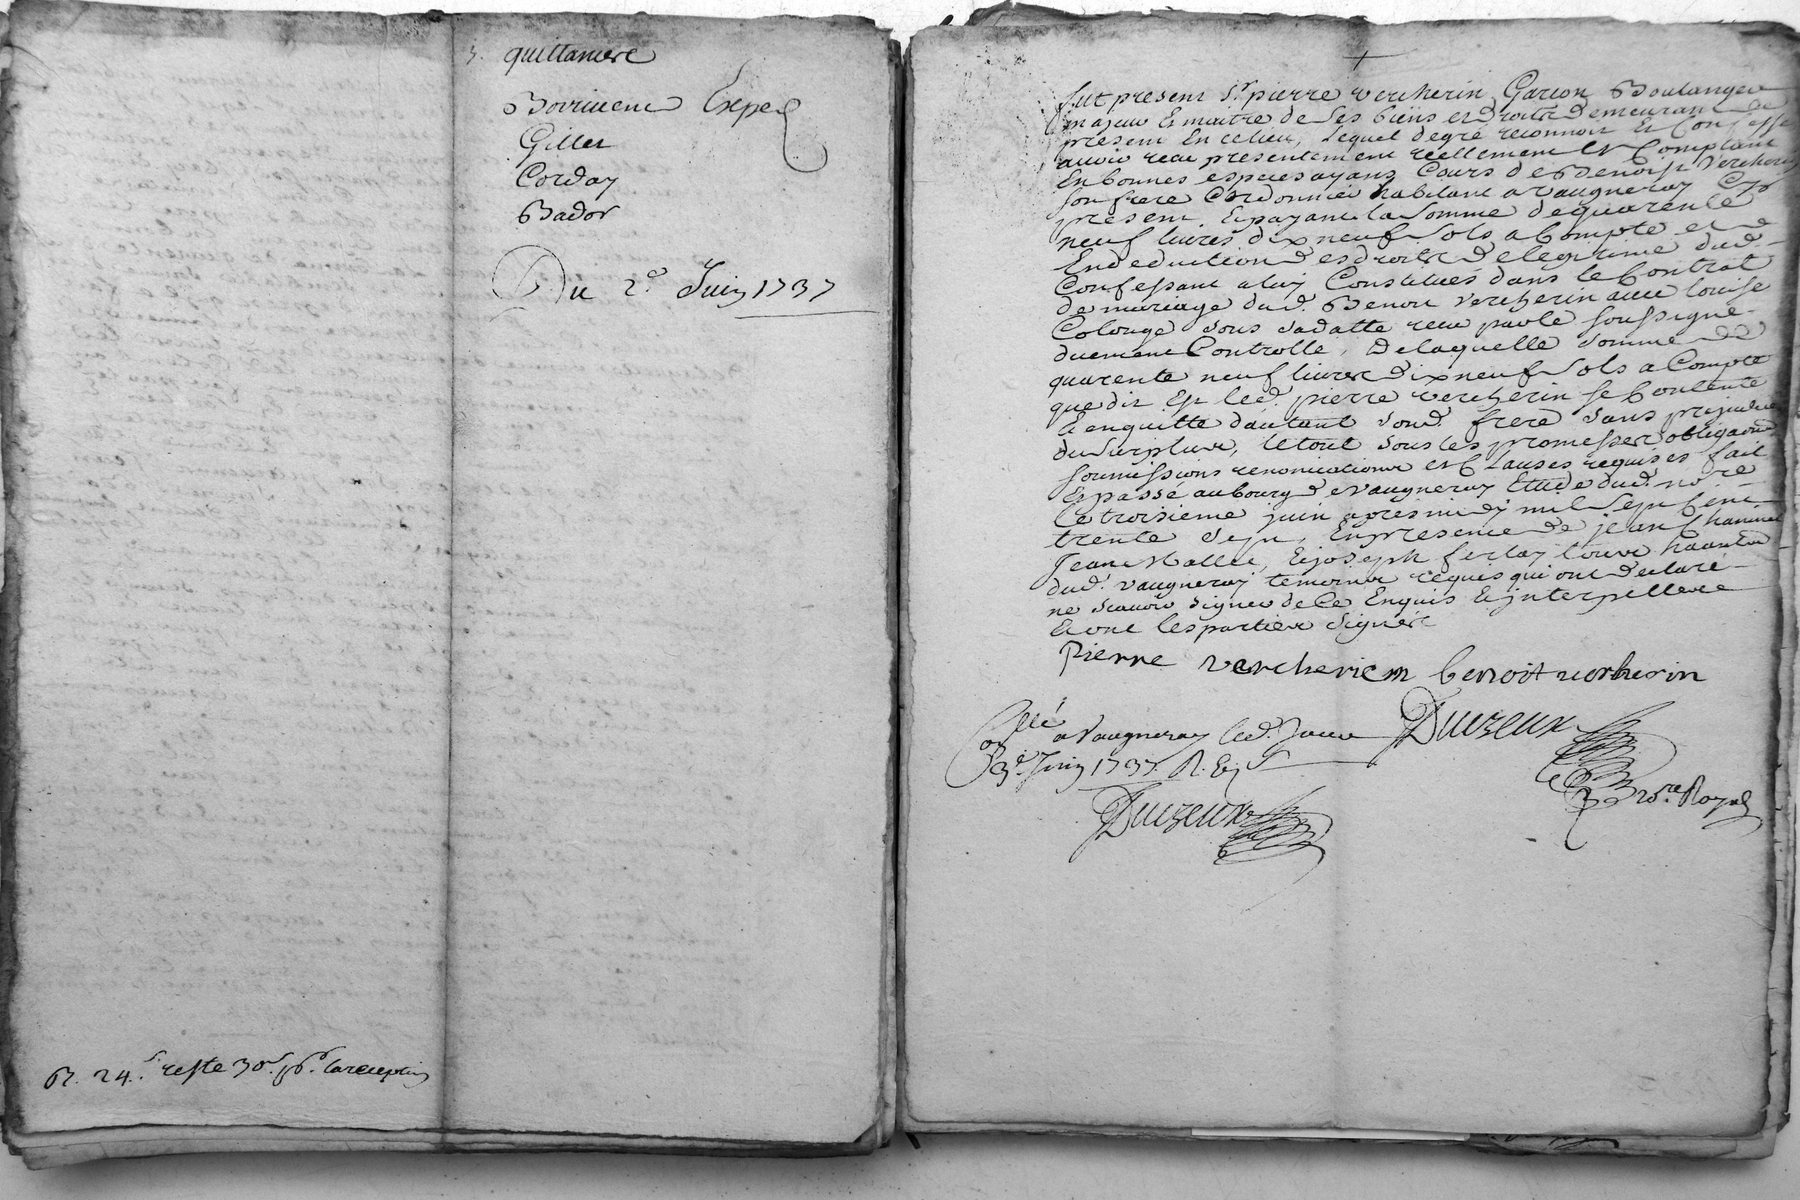 3. quittances
Borrivene Expe
Gillet
Corday
Bador
Du 2e Juin 1737
R. 24 s reste 30 s 6 d la reception
+
fut present Sr pierre vercherin Garcon Boulanger
majeur Et maitre de ses biens et droits demeurant de
present En ce lieu, Lequel de gré reconnoit Et Confesse
avoir recu presentement reellement Et Comptant
En bonnes especes ayans Cours de Benoist Vercherin
son frere Cordonnier habitant a vaugneray Cy
present Et payant la somme de quarente
neuf livres dix neuf sols a Compte et
En deduction des droits de legitime dud.
Confessant a luy Constitués dans le Contrat
de mariage dud. Benoit vercherin avec louise
Colonge sous sa datte recu par le soussigné
duement Controllé, De laquelle somme de
quarente neuf livres dix neuf sols a Compte
que dit Est led. pierre vercherin se Contente
Et en quitte d'autant sond. frere sans prejudice
du surplus, le tout sous les promesses obligaons
soumissions renonciations et Clauses requises fait
Et passé au bourg de vaugneray Etude dud. nore
le troisieme juin apres midy mil sept Cent
trente sept, En presence de jean Chaninel
Jean Vallet, Et joseph ferlay tous habitans
dud. vaugneray temoins requis qui ont declaré
ne scavoir signer de Ce Enquis Et interpellés
Et ont les parties signés
Pierre vercheriem benoit vercherin
Collé a Vaugneray led. Jour
3e Juin 1737 R. Six s
Duizeux
nore Royal
Duizeux